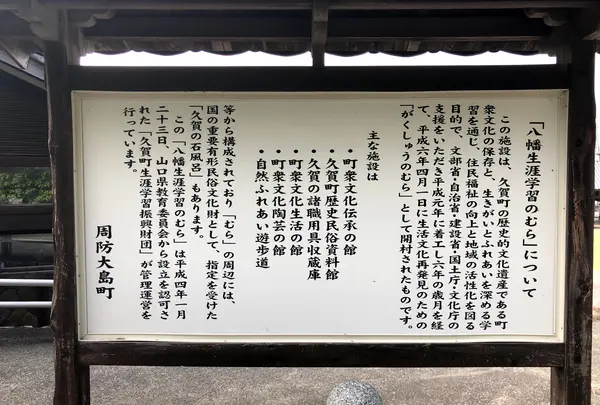 「八幡生涯学習のむら」について
この施設は、久賀町の歴史的文化遺産である町
衆文化の保存と、生きがいとふれあいを深める学
習を通じ、住民福祉の向上と地域の活性化を図る
目的で、文部省・自治省・建設省・国土庁・文化庁の
支援をいただき平成元年に着工し六年の歳月を経
て、平成六年四月一日に生活文化再発見のための
「がくしゅうのむら」として開村されたものです。
主な施設は
・町衆文化伝承の館
・久賀町歴史民俗資料館
・久賀の諸職用具収蔵庫
・町衆文化生活の館
・町衆文化陶芸の館
・自然ふれあい遊歩道
等から構成されており「むら」の周辺には、
国の重要有形民俗文化財として、指定を受けた
「久賀の石風呂」もあります。
この「八幡生涯学習のむら」は平成四年一月
二十三日、山口県教育委員会から設立を認可さ
れた「久賀町生涯学習振興財団」が管理運営を
行っています。
周防大島町